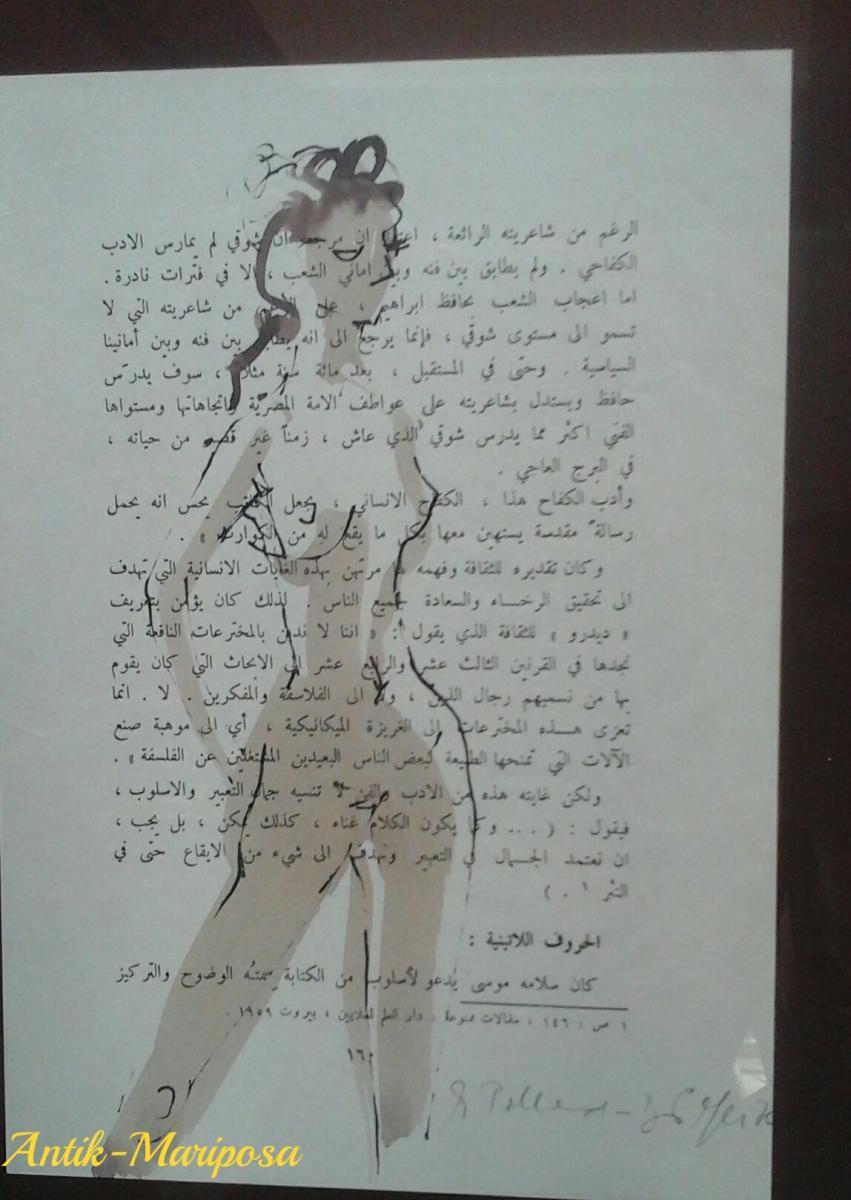 الرغم من شاعريته الرائعة ، ان مرجعه ان شوقي لم يمارس الادب
الكفاحي . ولم يطابق بين فنه وبين اماني الشعب ، الا في فترات نادرة .
اما اعجاب الشعب بحافظ ابراهيم ، على الرغم من شاعريته التي لا
تسمو الى مستوى شوقي ، فإنما يرجع الى انه يطابق بين فنه وبين أمانينا
السياسية . وحتى في المستقبل ، بعد مائة سنة مثلاً ، سوف يدرّس
حافظ ويستدل بشاعريته على عواطف الامة المصرية واتجاهاتها ومستواها
الفني اكثر مما يدرس شوقي الذي عاش ، زمناً غير قصير من حياته ،
في البرج العاجي .
وأدب الكفاح هذا ، الكفاح الانساني ، يجعل الكاتب يحس انه يحمل
رسالة مقدسة يستهين معها بكل ما يقع له من الكوارث » .
وكان تقديره للثقافة وفهمه لها مرتهن بهذه الغايات الانسانية التي تهدف
الى تحقيق الرخاء والسعادة لجميع الناس . لذلك كان يؤمن بتعريف
« ديدرو » للثقافة الذي يقول : « اننا لا ندين بالمخترعات النافعة التي
نجدها في القرنين الثالث عشر والرابع عشر الى الابحاث التي كان يقوم
بها من نسميهم رجال الذين ، ولا الى الفلاسفة والمفكرين . لا . انما
تعزى هذه المخترعات الى الغريزة الميكانيكية ، أي الى موهبة صنع
الآلات التي تمنحها الطبيعة لبعض الناس البعيدين المشتغلين عن الفلسفة » .
ولكن غايته هذه من الادب والفن لا تنسيه جمال التعبير والاسلوب ،
فيقول : ( ... وكما يكون الكلام غناء ، كذلك يمكن ، بل يجب ،
ان نعتمد الجمال في التعبير ونهدف الى شيء من الايقاع حتى في
النثر ١ . )
الحروف اللاتينية :
كان سلامه موسى يدعو لأسلوب من الكتابة سمته الوضوح والتركيز
١ ص : ١٤٦ ، مقالات ممنوعة : دار العلم للملايين ، بيروت ١٩٥٩ .
١٦٠
Antik-Mariposa